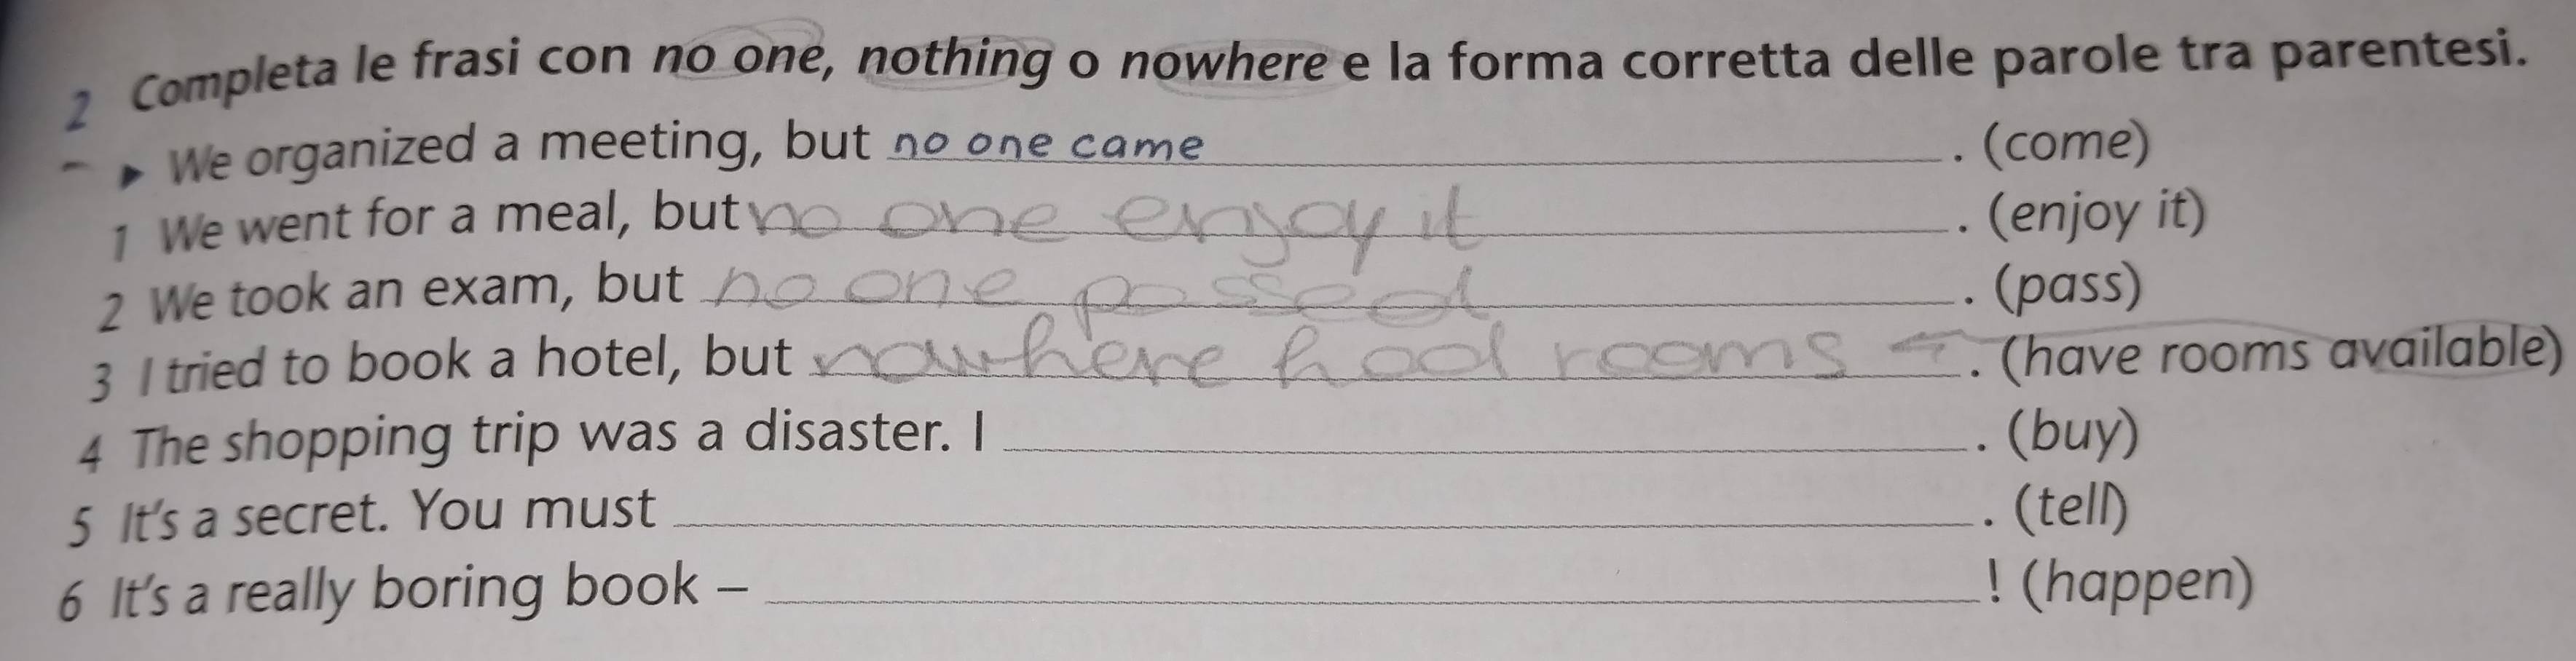 2 Completa le frasi con no one, nothing o nowhere e la forma corretta delle parole tra parentesi.
▸ We organized a meeting, but no one came . (come)
1 We went for a meal, but no one enjoy it . (enjoy it)
2 We took an exam, but no one passed . (pass)
3 I tried to book a hotel, but nowhere had rooms ← . (have rooms available)
4 The shopping trip was a disaster. I . (buy)
5 It's a secret. You must . (tell)
6 It's a really boring book – ! (happen)